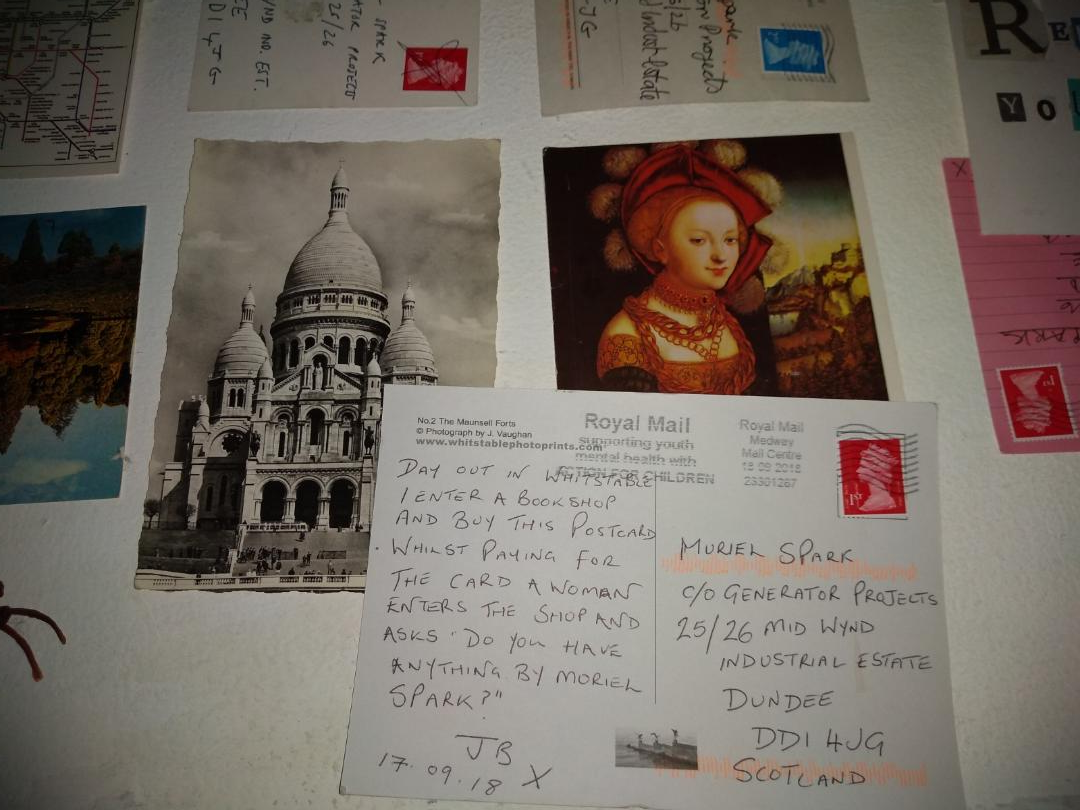 SPARK
PROJECTS
25/26
No.2 The Maunsell Forts
© Photograph by J. Vaughan
www.whitstablephotoprints.com
Royal Mail
supporting youth
mental health with
ACTION FOR CHILDREN
Royal Mail
Medway
Mail Centre
18 09 2018
23301267
1ST
DAY OUT IN WHITSTABLE
I ENTER A BOOKSHOP
AND BUY THIS POSTCARD
WHILST PAYING FOR
THE CARD A WOMAN
ENTERS THE SHOP AND
ASKS "DO YOU HAVE
ANYTHING BY MURIEL
SPARK?"
JB
17.09.18 X
MURIEL SPARK
C/O GENERATOR PROJECTS
25/26 MID WYND
INDUSTRIAL ESTATE
DUNDEE
DD1 4JG
SCOTLAND
R
YO
X
1ST